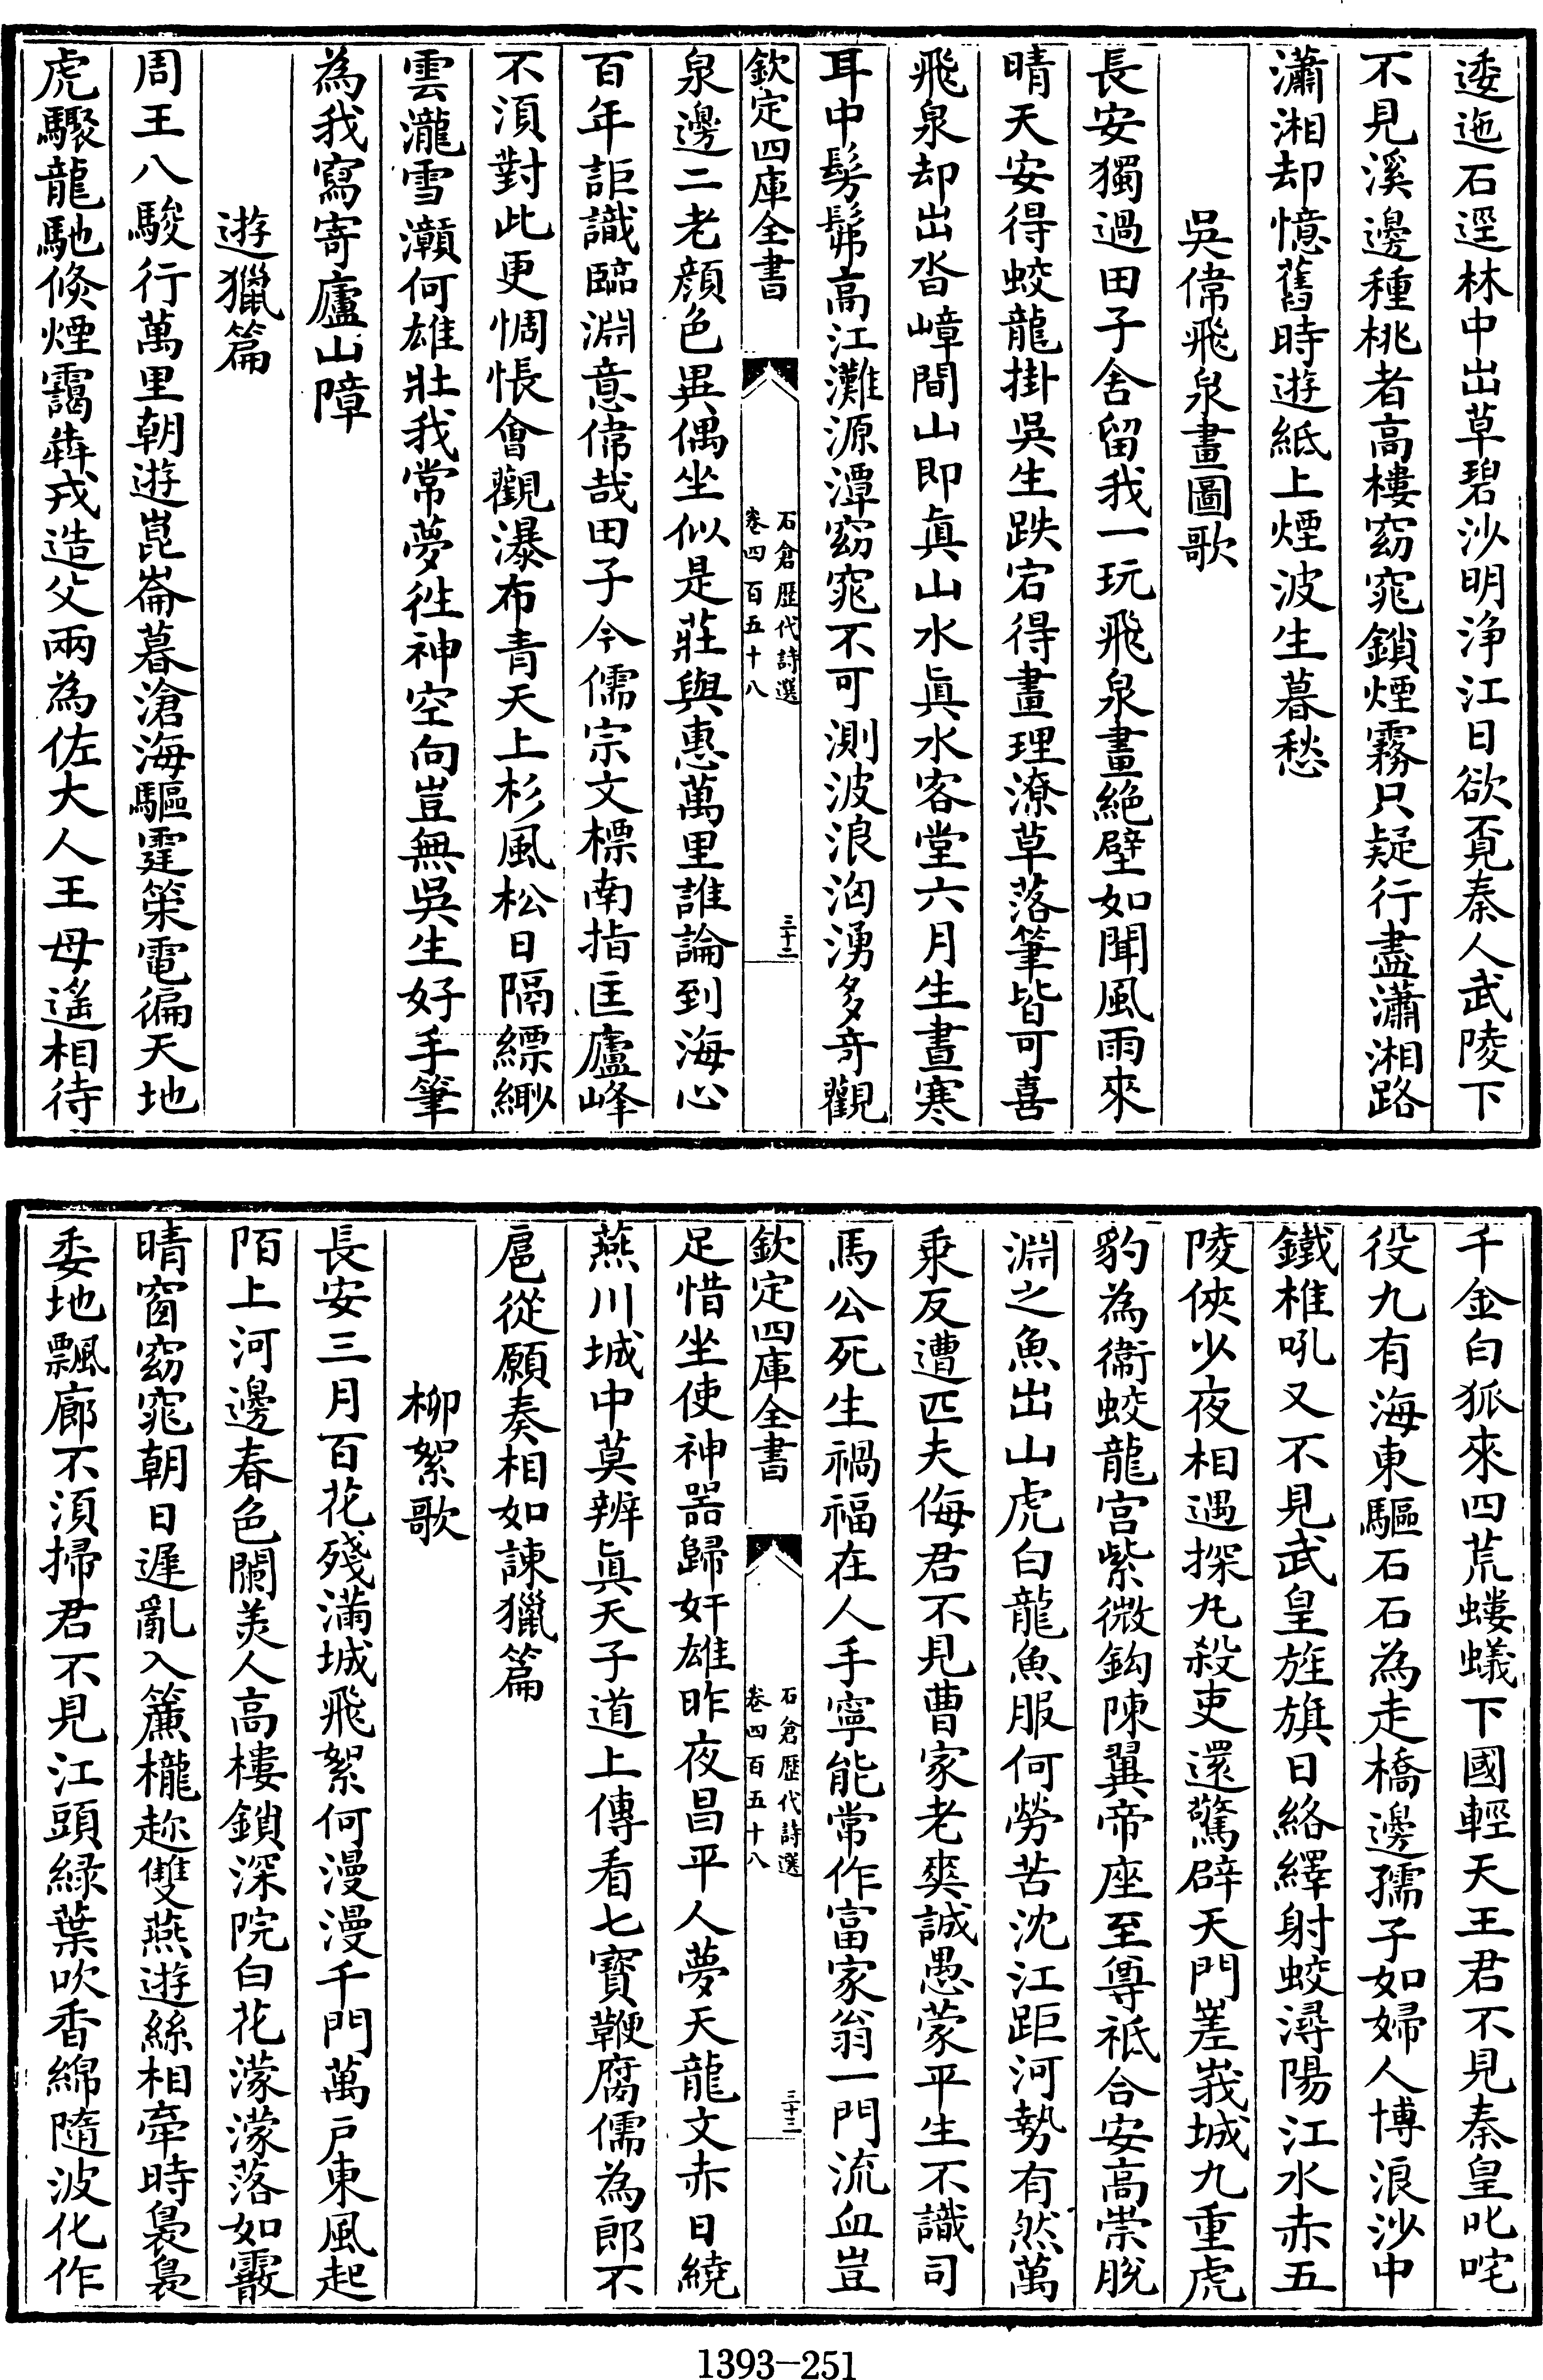 逶迤石逕林中出草碧沙明浄江日欲覔秦人武陵下
不見溪邊種桃者高樓窈窕鎖煙霧只疑行盡瀟湘路
瀟湘却憶舊時遊紙上煙波生暮愁
吳偉飛泉畫圖歌
長安獨過田子舍留我一玩飛泉畫絕壁如聞風雨來
晴天安得蛟龍掛吳生跌宕得畫理潦草落筆皆可喜
飛泉却出沓嶂間山即眞山水眞水客堂六月生晝寒
耳中髣髴高江灘源潭窈窕不可測波浪洶湧多奇觀
欽定四庫全書
石倉歷代詩選
卷四百五十八
三十二
泉邊二老顔色異偶坐似是莊與惠萬里誰論到海心
百年詎識臨淵意偉哉田子今儒宗文標南指匡廬峰
不須對此更惆悵會觀瀑布青天上杉風松日隔縹緲
雲瀧雪瀨何雄壯我常夢徃神空向豈無吳生好手筆
為我寫寄廬山障
遊獵篇
周王八駿行萬里朝遊崑崙暮滄海驅霆策電徧天地
虎驟龍馳倐煙靄犇戎造父兩為佐大人王母遙相待
千金白狐來四荒螻蟻下國輕天王君不見秦皇叱咤
役九有海東驅石石為走橋邊孺子如婦人博浪沙中
鐵椎吼又不見武皇旌旗日絡繹射蛟潯陽江水赤五
陵俠少夜相遇探九殺吏還驚辟天門嵳峩城九重虎
豹為衞蛟龍宫紫微鈎陳翼帝座至尊祗合安高崇脫
淵之魚出山虎白龍魚服何勞苦沈江距河勢有然萬
乘反遭匹夫侮君不見曹家老爽誠愚蒙平生不識司
馬公死生禍福在人手寧能常作富家翁一門流血豈
欽定四庫全書
石倉歷代詩選
卷四百五十八
三十三
足惜坐使神器歸奸雄昨夜昌平人夢天龍文赤日繞
燕川城中莫辨眞天子道上傳看七寶鞭腐儒為郎不
扈從願奏相如諫獵篇
柳絮歌
長安三月百花殘滿城飛絮何漫漫千門萬戶東風起
陌上河邊春色闌美人高樓鎖深院白花濛濛落如霰
晴窗窈窕朝日遲亂入簾櫳趂雙燕遊絲相牽時裊裊
委地飄廊不須掃君不見江頭緑葉吹香綿隨波化作
1393-251